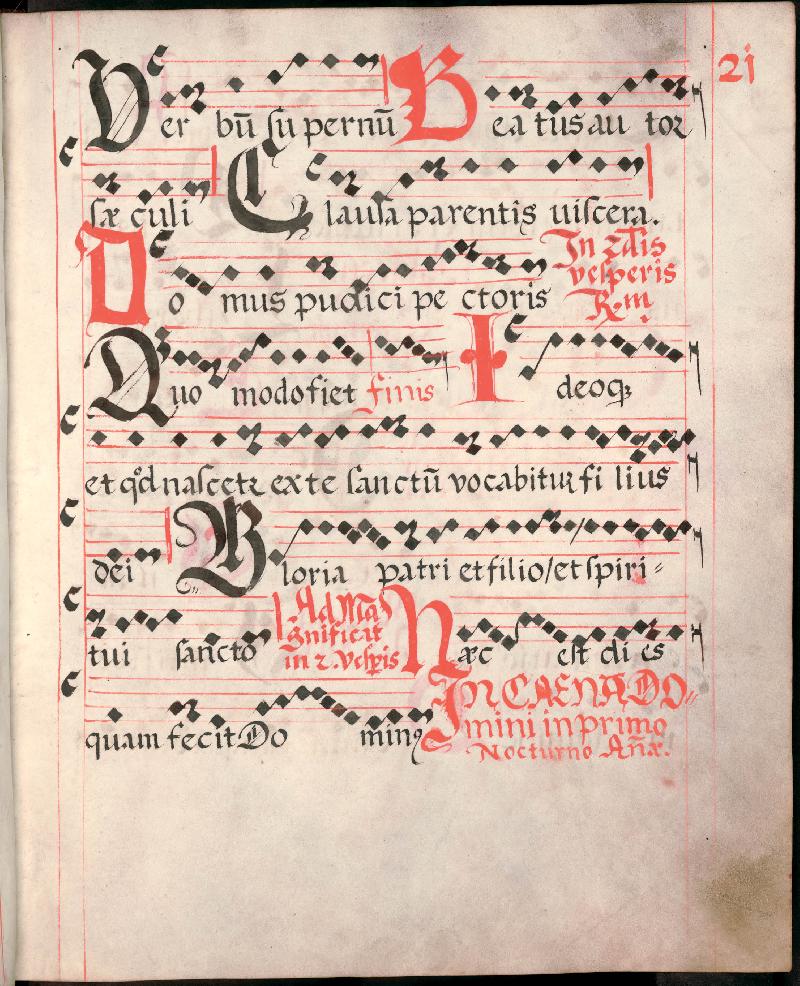 21
Ver bū su pernū Bea tus au tor
sæ culi Clausa parentis uiscera.
Domus pudici pe ctoris In 2dis
vesperis
Rm
Quo modo fiet finis Ideoq
et qd nascetr ex te sanctū vocabitur fi lius
dei Gloria patri et filio/et spiri=
tui sancto Ad Ma
gnificat
in 2. vesp̄is Hæc est di es
quam fecit Do minus IN CAENA DO=
mini in primo
Nocturno Añæ.